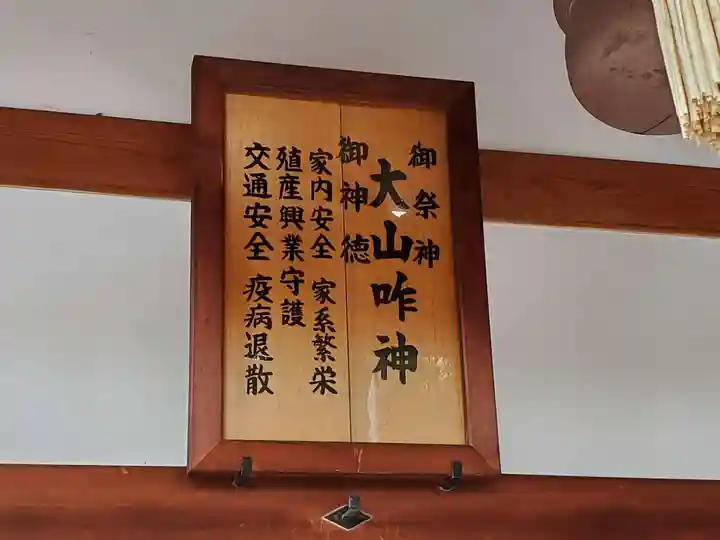 御祭神
大山咋神
御神徳
家内安全 家系繁栄
殖産興業守護
交通安全 疫病退散